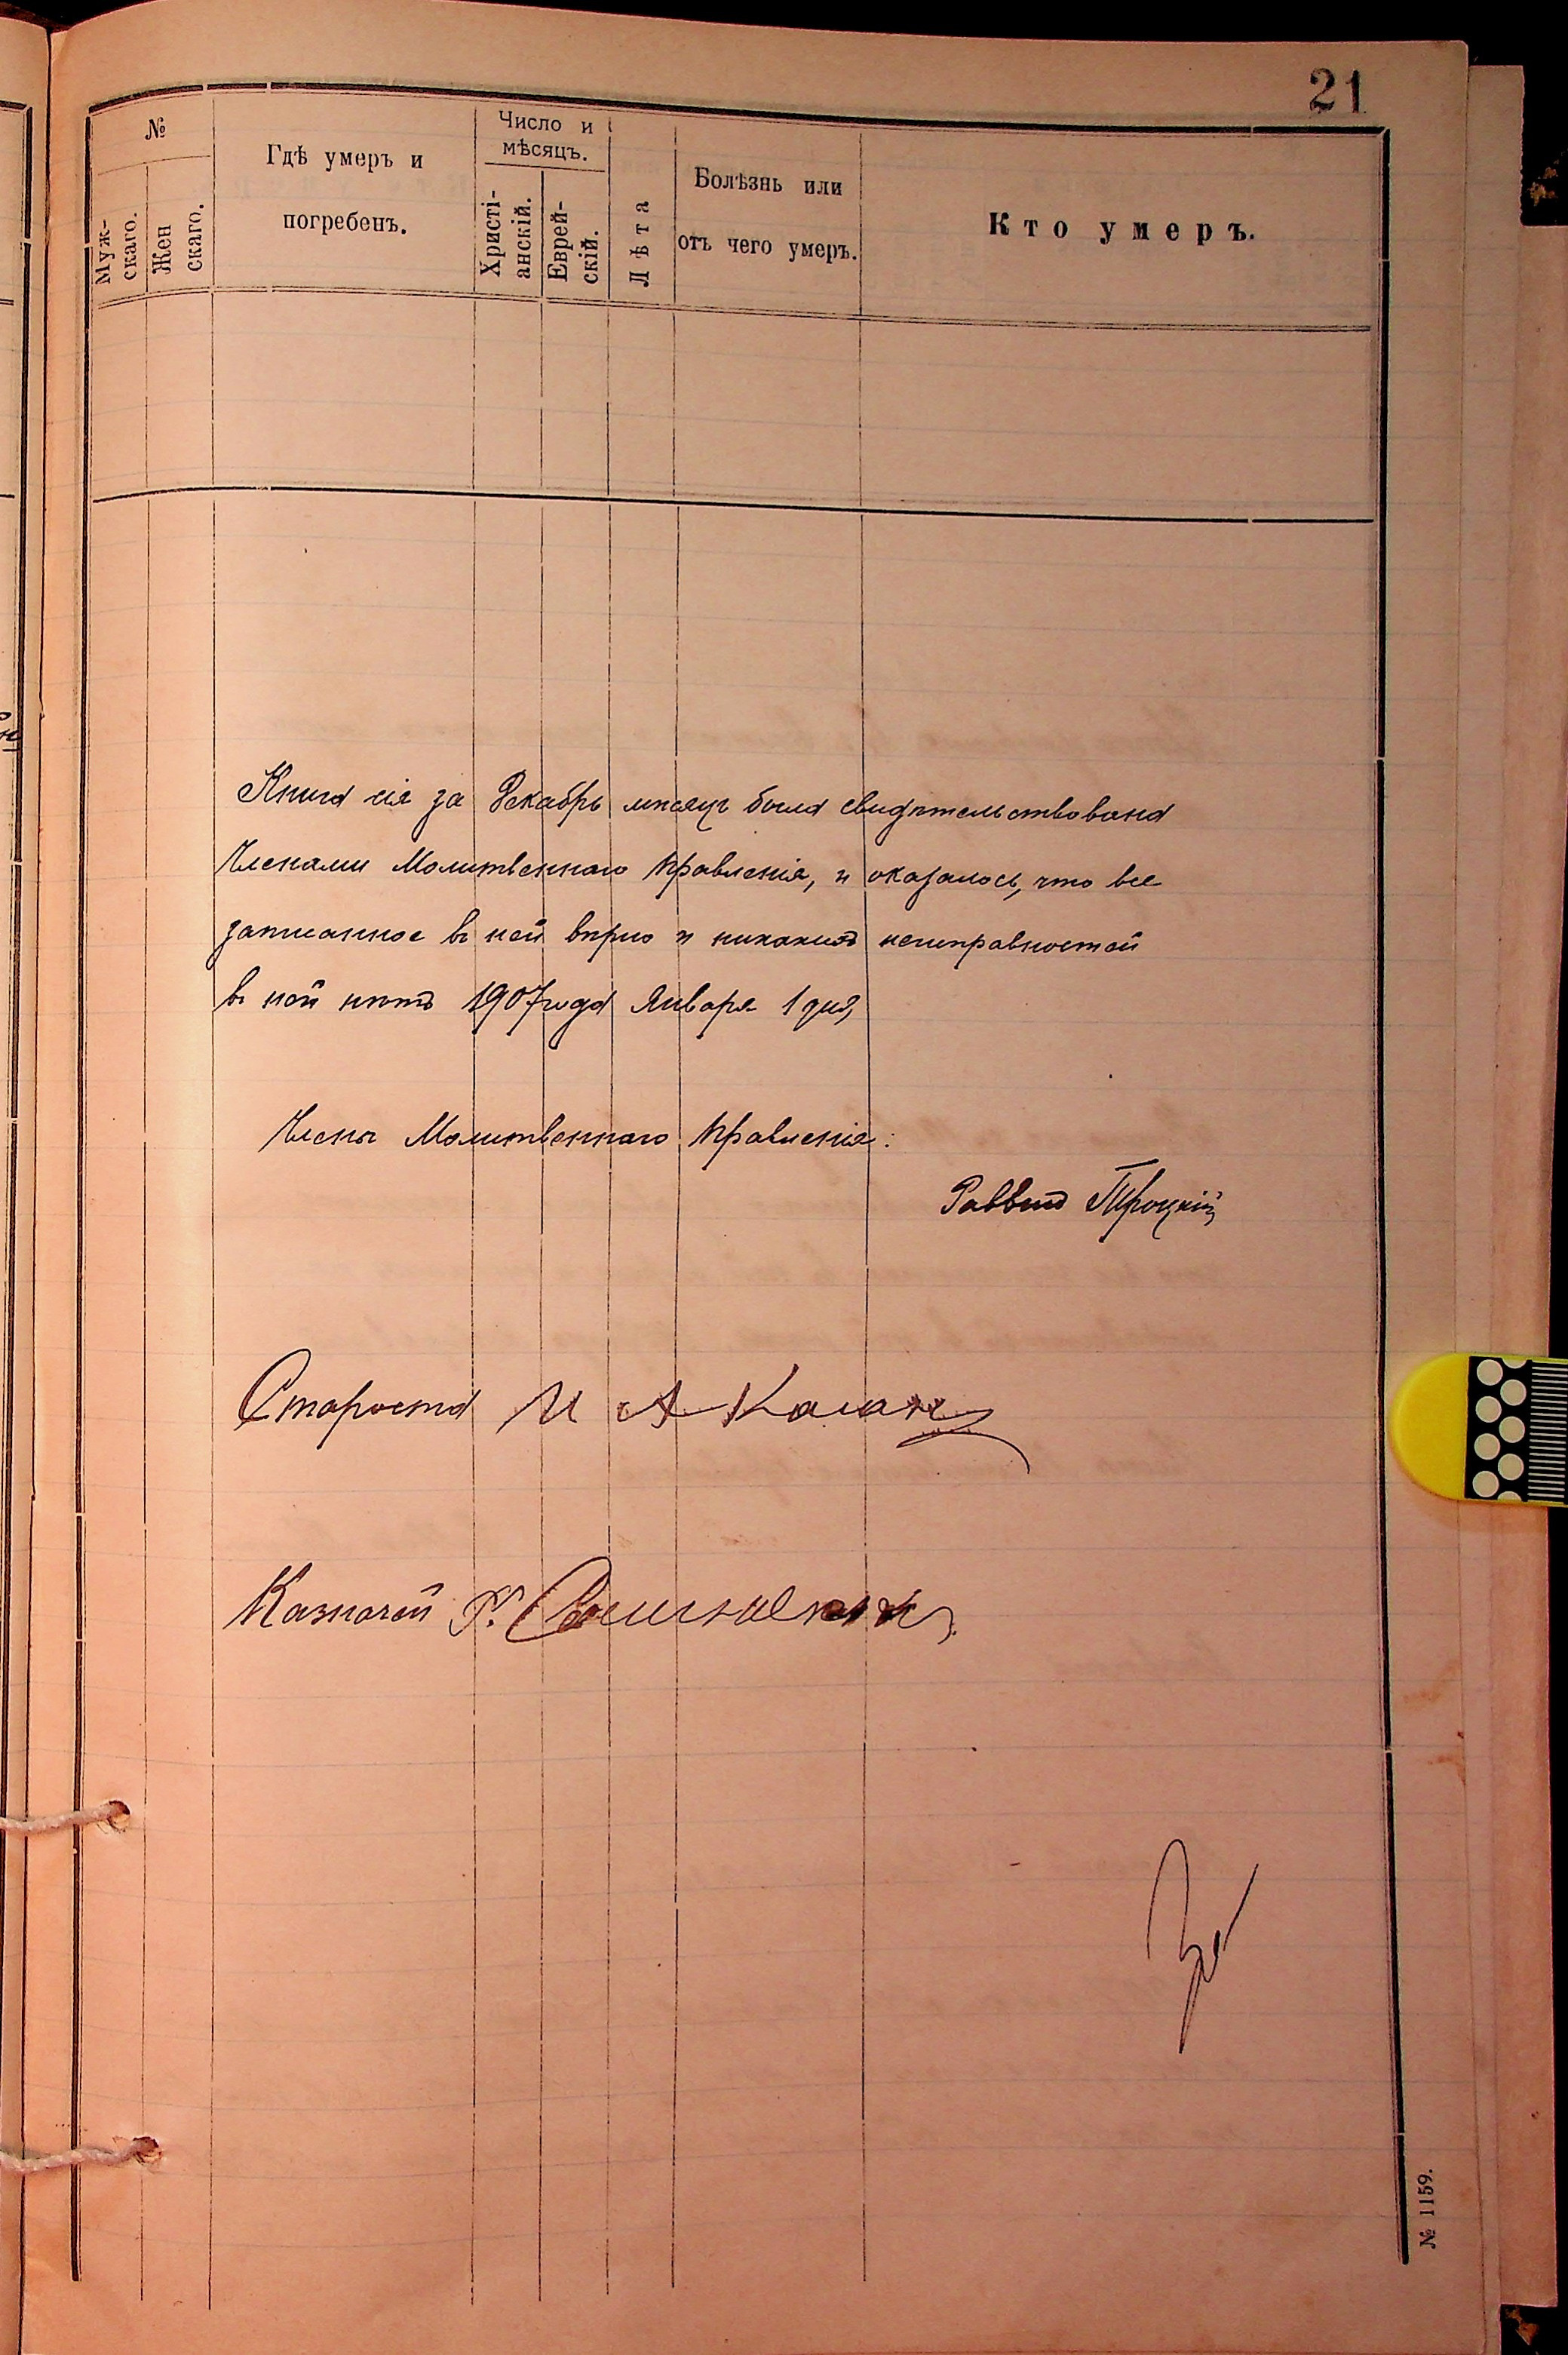 21
№
Муж-
скаго.
Жен
скаго.
Гдѣ умеръ и
погребенъ.
Число и
мѣсяцъ.
Христі-
анскій.
Еврей-
скій.
Лѣта
Болѣзнь или
отъ чего умеръ.
Кто умеръ.
Книга сія за Декабрь мѣсяцъ была свидѣтельствована
Членами Молитвеннаго Правленія, и оказалось, что все
записанное въ ней вѣрно и никакихъ неисправностей
въ ней нѣтъ 1907 года Января 1 дня,
Члены Молитвеннаго Правленія:
Раввинъ Троцкій
Староста И А Каган
Казначей
№ 1159.